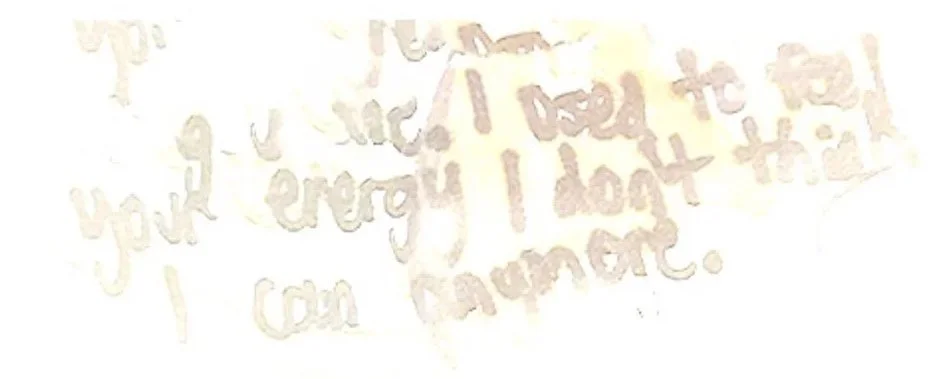 I used to feel
your energy I don't think
I can anymore.